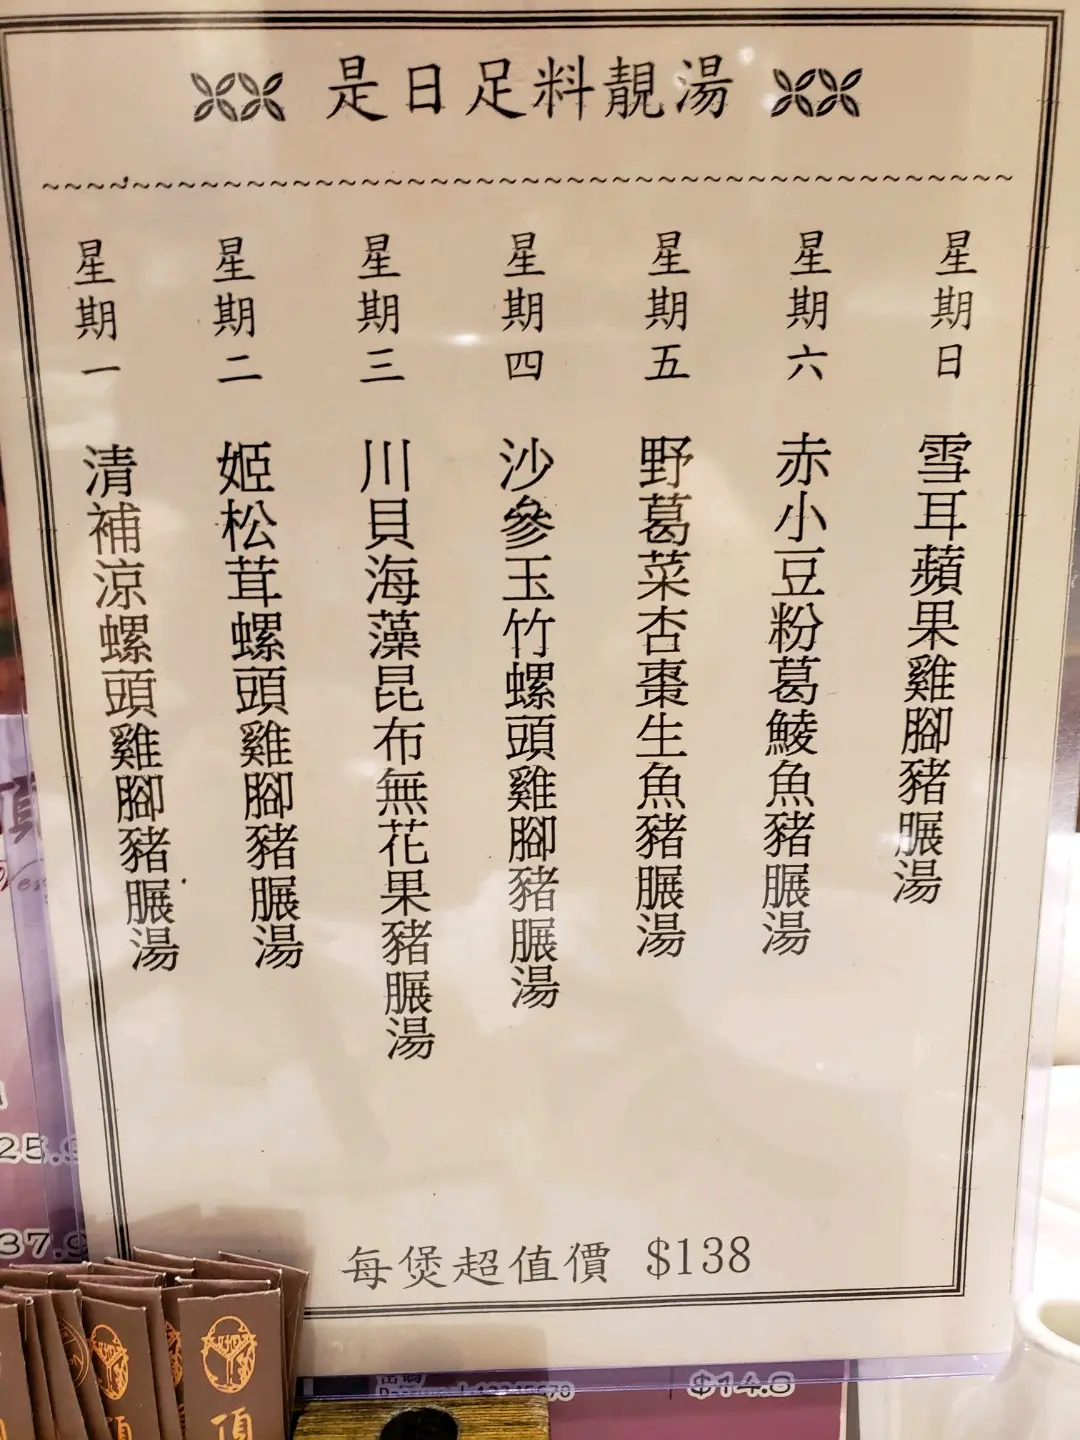 是日足料靚湯
星期一 清補凉螺頭雞腳豬𦟌湯
星期二 姬松茸螺頭雞腳豬𦟌湯
星期三 川貝海藻昆布無花果豬𦟌湯
星期四 沙參玉竹螺頭雞腳豬𦟌湯
星期五 野葛菜杏棗生魚豬𦟌湯
星期六 赤小豆粉葛鯪魚豬𦟌湯
星期日 雪耳蘋果雞腳豬𦟌湯
每煲超值價 $138
$14.8
頂